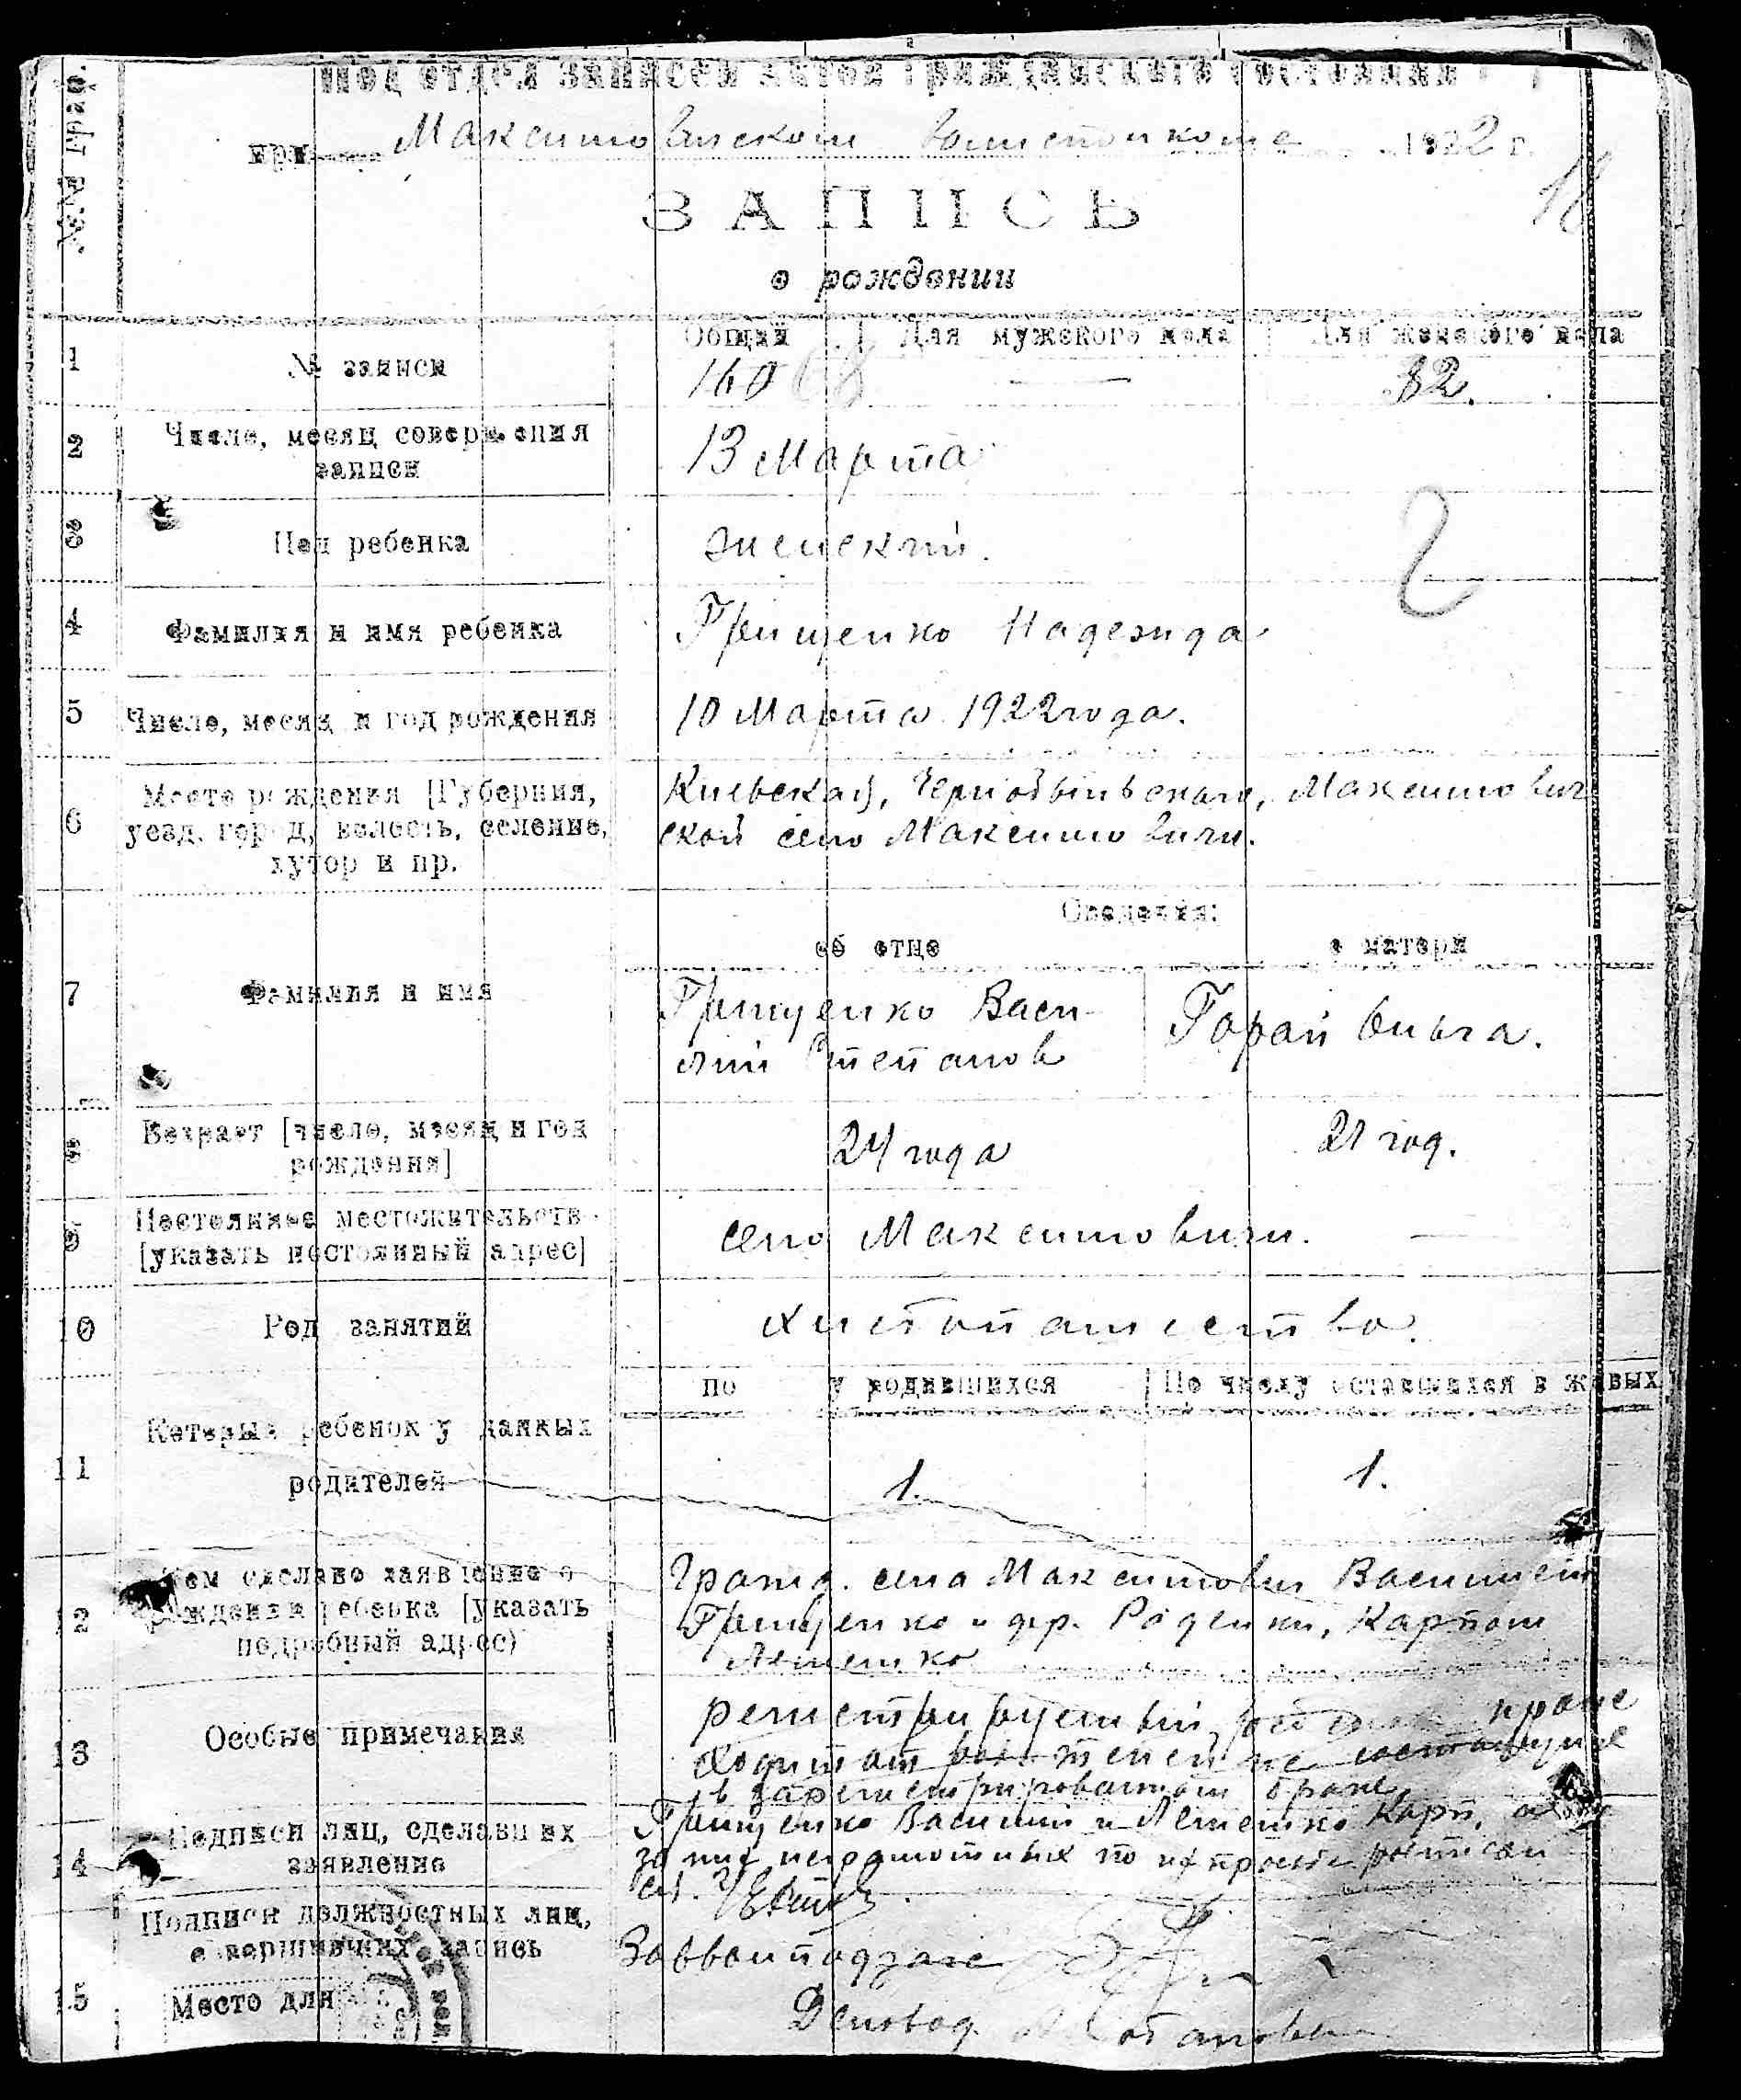 Под отдел записей актов гражданского состояния
№№ граф.
при Максимовическом Волисполкоме 1922 г.
18
ЗАПИСЬ
о рождении
Общий Для мужского пола Для женского пола
1 № записи 160 — 82.
2 Число, месяц совершения
записи
13 Марта
3 Пол ребенка женский.
2
4 Фамилия и имя ребенка Грищенко Надежда
5 Число, месяц и год рождения 10 Марта 1922 года.
6 Место рождения [Губерния,
уезд, город, волость, селение,
хутор и пр.
Киевская, Чернобыльского, Максимович
ской село Максимовичи.
Сведения:
об отце о матери
7 Фамилия и имя
Грищенко Васи-
лий Степанов
Горай Ольга.
8 Возраст [число, месяц и год
рождения]
24 года 21 год.
9 Постоянное местожительств
[указать постоянный адрес]
село Максимовичи. —
10 Род занятий хлебопашество.
по у родившихся По числу оставшихся в живых
11 Который ребенок у данных
родителей
1. 1.
12 Кем сделано заявление о
рождении ребенка [указать
подробный адрес)
Гражд. села Максимович Василием
Грищенко и дер. Роденки, Карпом
Лемешко
13 Особые примечания
регистрируемый ребенок проис
ходит от родителей не состоящих
в зарегистрированном браке
14 Подписи лиц, сделавших
заявление
Грищенко Василий и Лемешко Карп, а
за них неграмотных по их просьбе расписал
ся.
Подписи должностных лиц,
совершивших запись
Завволподзаг
15 Место для
Деловод.